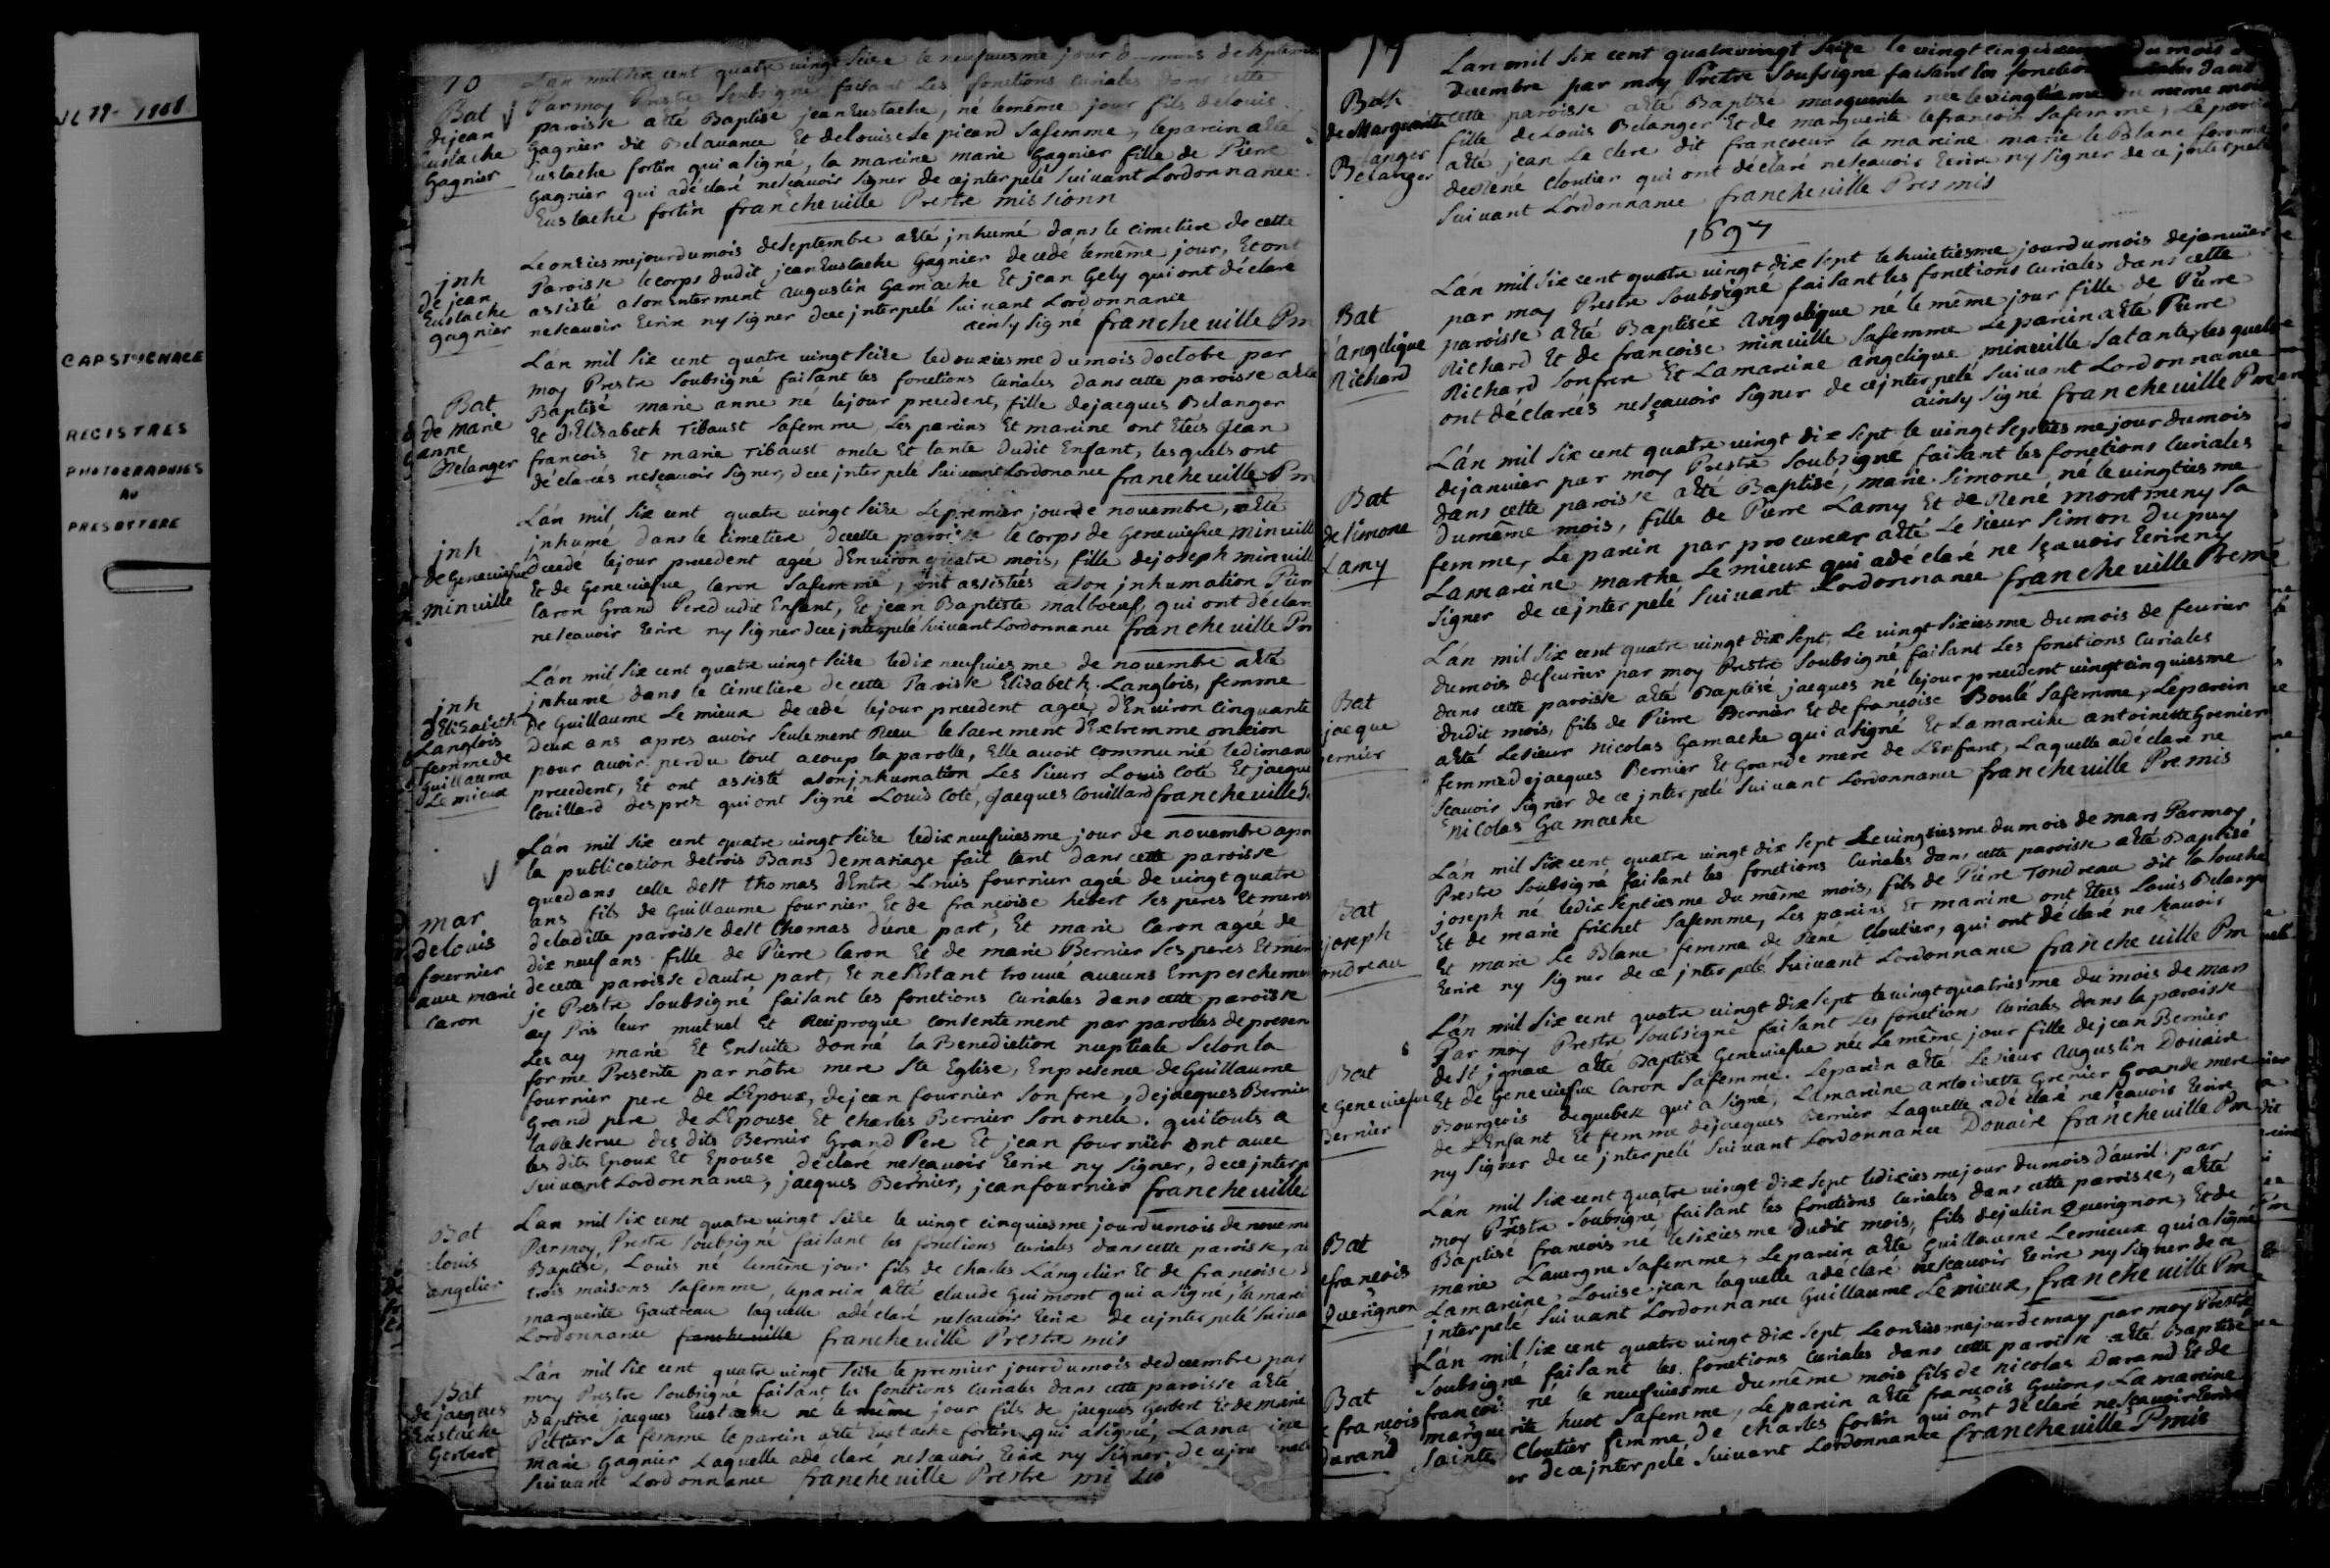 JL 79- 1908
CAP ST IGNACE
REGISTRES
PHOTOGRAPHIES
AU
PRESBYTERE
10
Lán mil Six cent quatre vingt Seize le neufuiesme jour mois de septem
Par moy Prestre Soubsigné faisant Les fonctions Curiales dans cette
paroisse a été Baptisé jean Eustache, né lemême jour fils delouis
Gagnier dit Belauance Et delouise Le picard Safemme, leparein a été
Eustache fortin qui a signé, la mareine marie Gagnier fille de Pierre
Gagnier qui adéclaré nesçavoir signer de cejnterpelé Suivant Lordonnance
Eustache fortin francheville Prestre missionn
Bat
dejean
Eustache
Gagnier
Le onziesmejourdumois deseptembre a été jnhumé dans le Cimetiere de cette
Paroisse lecorps dudit jean Eustache Gagnier decedé lemême jour, Et ont
assisté a son Enterment augustin Gamache Et jean Gely qui ont déclaré
nescavoir Ecrire ny signer dece jnterpelé Suivant Lordonnance
ainsy signé francheville Pm
jnh
de jean
Eustache
gagnier
Lán mil Six cent quatre vingt Seize ledouziesme dumois doctobre par
moy Prestre Soubsigné faisant les fonctions Curiales dans cette paroisse a été
Baptisé marie anne né lejour precedent, fille dejacques Belanger
Et d'Elisabeth Tibaust Safemme, Les pareins Et mareine ont Etéés jean
francois Et marie Tibaust oncle Et tante dudit Enfant, lesquels ont
déclarés nesçavoir signer, dece jnterpelé Suivant Lordonance francheville Pm
Bat
de marie
anne
Belanger
Lán mil Six cent quatre vingt Seize Lepremier jour de novembre, a été
jnhumé dans le Cimetiere decette paroisse le Corps de Geneuiefue minuill
decedé lejour precedent ageé dEnviron quatre mois, fille dejoseph minuill
Et de Geneuiefue Caron Safemme, ont assistés ason jnhumation Pierr
Caron Grand Pere dudit Enfant, Et jean Baptiste malboeuf, qui ont déclar
nescavoir Ecrire ny signer dece jnterpelé Suivant Lordonnance francheville Pm
jnh
de Geneuiefue
minuille
Lán mil Six cent quatre vingt Seize ledix neufuiesme de novembre a été
jnhumé dans le Cimetiere de cette Paroisse Elisabeth Langlois, femme
de Guillaume Le mieux decedé lejour precedent ageé, dEnviron Cinquante
deux ans apres avoir Seulement Receu le Sacrement dExtremme onxion
pour avoir perdu tout acoup la parolle, Elle avoit Communié ledimanc
precedent, Et ont assisté asonjnhumation Les Sieurs Louis Coté Et jacque
Couillard desprez qui ont signé Louis Coté, Jacques Couillard francheville
jnh
d'Elisabeth
Langlois
femme de
Guillaume
Le mieux
Lán mil Six cent quatre vingt Seize ledix neufuiesme jour de novembre apr
la publication detrois Bans demariage fait tant dans cette paroisse
que dans celle deSt thomas dEntre Louis fournier ageé de vingt quatre
ans fils de Guillaume fournier Et de françoise hebert ses peres Et meres
deladitte paroisse deSt thomas dúne part, Et marie Caron ageé de
dix neuf ans fille de Pierre Caron Et de marie Bernier ses peres Et mer
decette paroisse dautre part, Et ne s'Estant trouué aucuns Empeschemen
je Prestre Soubsigné faisant les fonctions Curiales dans cette paroisse
ay Pris leur mutuel Et Reciproque Consentement par paroles depresen
Les ay marié Et Ensuite donné la Benediction nuptiale Selon la
forme Prescrite par nôtre mere Ste Eglise, Enpresence de Guillaume
fournier pere de LEpoux, dejean fournier son frere, dejacques Bernier
Grand pere de LEpouse Et Charles Bernier Son oncle. qui touts a
la Reserve des dits Bernier Grand Pere Et jean fournier ont avec
les dits Epoux Et Epouse déclaré nesçavoir Ecrire ny signer, dece jnterp
Suivant Lordonnance, jacques Bernier, jean fournier francheville
mar
delouis
fournier
avec marie
Caron
Lan mil Six cent quatre vingt Seize le vingt cinquiesme jourdumois de nouem
Par moy, Prestre Soubsigné faisant les fonctions Curiales dans cette paroisse, a
Baptisé, Louis né lemême jour fils de Charles Lángelier Et de francoise
trois maisons Safemme, leparein a été claude Guimont qui a signé, lamarei
marguerite Gautreau laquelle adéclaré nescavoir Ecrire de cejnterpelé Suiva
Lordonnance francheville francheville Prestre mis
Bat
louis
angelier
Lán mil Six cent quatre vingt Seize le premier jourdumois dedecembre par
moy Prestre Soubsigné faisant les fonctions Curiales dans cette paroisse a été
Baptisé jacques Eustache né le même jour fils de jacques Gerbert Et de marie
Peltier Sa femme le parein a été Eustache fortin qui a signé, Lama ine
marie Gagnier Laquelle adéclaré nescavoir Ecrire ny signer de cejn
Suivant Lordonnance francheville Prestre mis
Bat
de jacques
Eustache
Gerbert
Lan mil Six cent quatrevingt Seize le vingt cinquiesme dumois de
decembre par moy Prestre Soubsigné faisant les fonction dans
cette paroisse a été Baptisé marguerite née le vingtiéme du meme mois
fille de Louis Belanger Et de marguerite lefrancois Safemme, Le parein
a été jean Le clerc dit francoeur la mareine marie le Blanc femme
de René Cloutier qui ont déclaré nescavoir Ecrire ny signer de ce jnterpelé
Suivant Lordonnance francheville Pres mis
Bat
de Marguerite
Belanger
Belanger
1697
Lán mil Six cent quatre vingt dix Sept le huictiesme jourdumois dejanuier
par moy Prestre Soubsigné faisant les fonctions Curiales dans cette
paroisse a été Baptiséé angelique né le même jour fille de Pierre
Richard Et de francoise minuille Safemme Le parein a été Pierre
Richard Son frere Et Lamareine angelique minuille Satante, les quels
ont déclarés nesçavoir signer de cejnterpelé Suivant Lordonnance
ainsy signé francheville Pm
Bat
d'angelique
Richard
Lán mil Six cent quatre vingt dix Sept le vingt Septiesmejour dumois
dejanuier par moy Prestre Soubsigné faisant les fonctions Curiales
dans cette paroisse a été Baptisé, marie Simone, né le vingtiesme
dumême mois, fille de Pierre Lamy Et de René montmeny Sa
femme, Le parein par procureur a été Le Sieur Simon Dupuy
Lamareine marthe Le mieux qui adéclaré ne sçavoir Ecrire ny
signer de cejnterpelé Suivant Lordonnance francheville Premi
Bat
de Simone
Lamy
Lán mil Six cent quatre vingt dix Sept, Le vingt Sixiesme dumois de feurier
dumois defeurier par moy Prestre Soubsigné, faisant Les fonctions Curiales
dans cette paroisse a été Baptisé jacques né lejour precedent vingt cinquiesme
dudit mois, fils de Pierre Bernier Et de françoise Boulé Safemme, Leparein
a été LeSieur nicolas Gamache qui a signé Et Lamareine antoinette Grenier
femme dejacques Bernier Et Grande mere de LEnfant, Laquelle adéclaré ne
Sçavoir signer de ce jnterpelé Suivant Lordonnance francheville Pre mis
Nicolas Gamache
Bat
jacque
ernier
Lán mil Six cent quatre vingt dix Sept Levingtiesme dumois de mars Par moy
Prestre Soubsigné faisant les fonctions Curiales dans cette paroisse a été Baptisé
joseph né ledix Septiesme du même mois, fils de Pierre Tondreau dit la Souche
Et de marie frichet Safemme, Les pareins Et mareine ont Etéés Louis Belange
Et marie le Blanc femme de René Cloutier, qui ont déclaré ne scavoir
Ecrire ny signer de ce jnterpelé Suivant Lordonnance francheville Pm
Bat
joseph
ondreau
Lán mil Six cent quatre vingt dix Sept le vingt quatriesme du mois de mars
Par moy Prestre Soubsigné faisant Les fonctions Curiales dans la paroisse
de St jgnace a été Baptisé Geneuiefue née Le même jour fille dejean Bernier
Et de Geneuiefue Caron Safemme. Leparein a été LeSieur Augustin Doüaire
Bourgeois dequebek qui a signé, Lamareine antoinette Grenier Grande mere
de LEnfant Et femme dejacques Bernier Laquelle adéclaré nescavoir Ecrire
ny signer de ce jnterpelé Suivant Lordonnance Doüaire francheville Pm
Bat
e Geneuiefue
Bernier
Lán mil Six cent quatre vingt dix Sept ledixiesmejour dumois dáuril par
moy Prestre Soubsigné faisant les fonctions Curiales dans cette paroisse, a été
Baptisé francois né leSixiesme dudit mois, fils dejulien Querignon, Et de
marie Lauergne Safemme, Le parein a été Guillaume Lemieux qui a signé
Lamareine, Louise jean laquelle adéclaré nescavoir Ecrire ny signer de ce
jnterpelé Suivant Lordonnance Guillaume Lemieux, francheville Pm
Bat
efrançois
Querignon
Lán mil Six cent quatre vingt dix Sept Le onziesmejour demay par moy Prestre
Soubsigné faisant les fonctions Curiales dans cette paroisse a été Baptisé
françois né le neufuiesme dumême mois fils de nicolas Durand Et de
marguerite huot Safemme, Le parein a été françois Guion, La mareine
Sainte Cloutier femme de charles fortin qui ont déclaré nesçavoir Ecrire
er de cejnterpelé Suivant Lordonnance francheville Pmis
Bat
e françois
durand